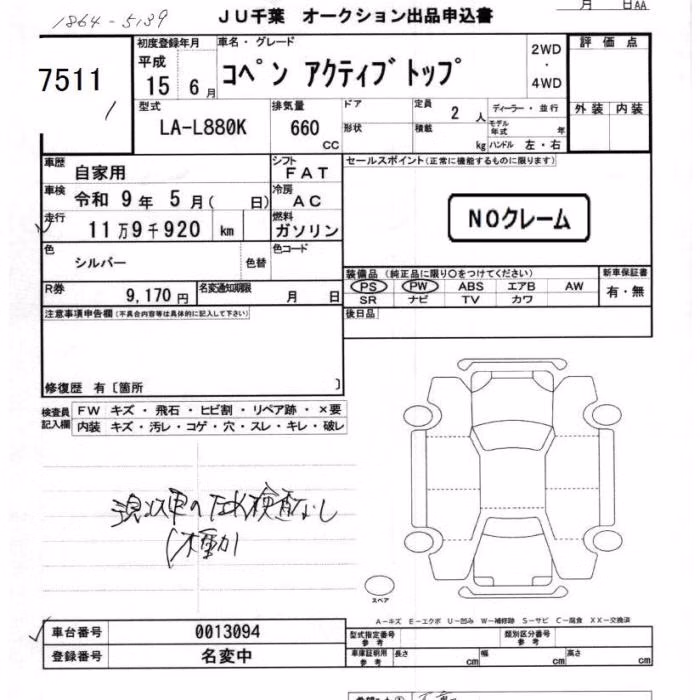 1864-5139
JU千葉 オークション出品申込書
月 日AA
7511
初度登録年月
平成
15 6月
車名・グレード
コペン アクティブトップ
2WD
・
4WD
評価点
外装 内装
型式
LA-L880K
排気量
660
CC
ドア
形状
定員
2 人
積載
kg
ディーラー・並行
モデル年式 年
ハンドル 左・右
車歴
自家用
シフト
FAT
セールスポイント(正常に機能するものに限ります)
車検
令和 9年 5月( 日)
冷房
AC
NOクレーム
走行
11万9千920 km
燃料
ガソリン
色
シルバー
色替
色コード
装備品 (純正品に限り○をつけてください)
新車保証書
PS PW ABS エアB AW
有・無
SR ナビ TV カワ
R券
9,170円
名変通知期限
月 日
後日品
注意事項申告欄(不具合内容等は具体的に記入して下さい)
修復歴 有〔箇所 〕
検査員記入欄
FW キズ・飛石・ヒビ割・リペア跡・×要
内装 キズ・汚レ・コゲ・穴・スレ・キレ・破レ
現状車の下回検査なし
(不動)
スペア
A-キズ E-エクボ U-凹み W-補修跡 S-サビ C-腐食 XX-交換済
車台番号
0013094
型式指定番号
参考
類別区分番号
参考
登録番号
名変中
車庫証明用
参考
長さ
cm
幅
cm
高さ
cm